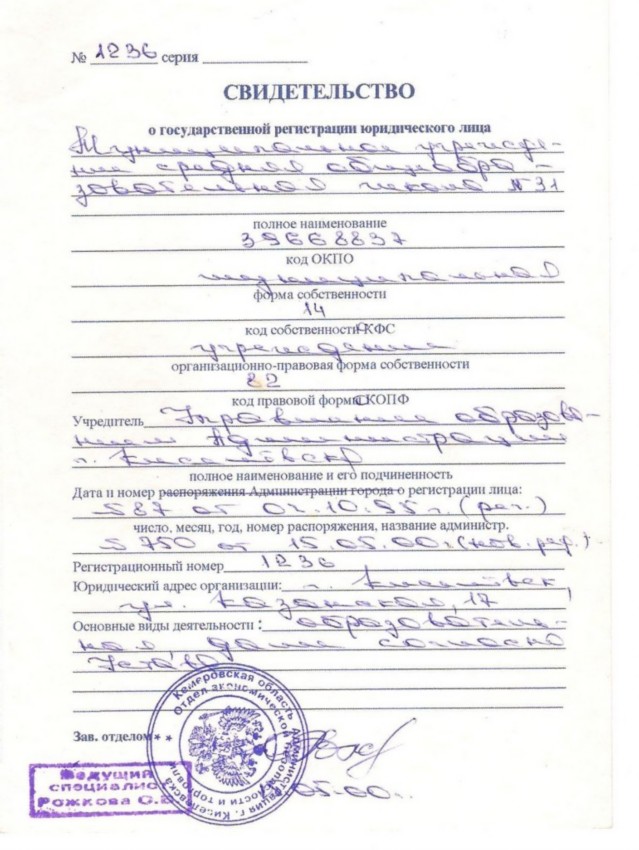 № 1236 серия
СВИДЕТЕЛЬСТВО
о государственной регистрации юридического лица
Муниципальное учрежде-
ние средняя общеобра-
зовательная школа №31
полное наименование
39668837
код ОКПО
муниципальная
форма собственности
14
код собственности КФС
учреждение
организационно-правовая форма собственности
82
код правовой формы КОПФ
Учредитель Управление образова-
нием Администрации
г. Киселёвска
полное наименование и его подчиненность
Дата и номер распоряжения Администрации города о регистрации лица:
587 от 10.95 г. (рег.)
число, месяц, год, номер распоряжения, название администр.
750 от 15.05.00 г (нов. ред.)
Регистрационный номер 1236
Юридический адрес организации: г. Киселёвск,
ул. Казанская, 17
Основные виды деятельности : образователь-
ная, согласно
Устава
Зав. отделом
05.00г.
Кемеровская область Администрация г. Киселевска
Отдел экономической
и торговли
Ведущий
специалист
Рожкова О.В